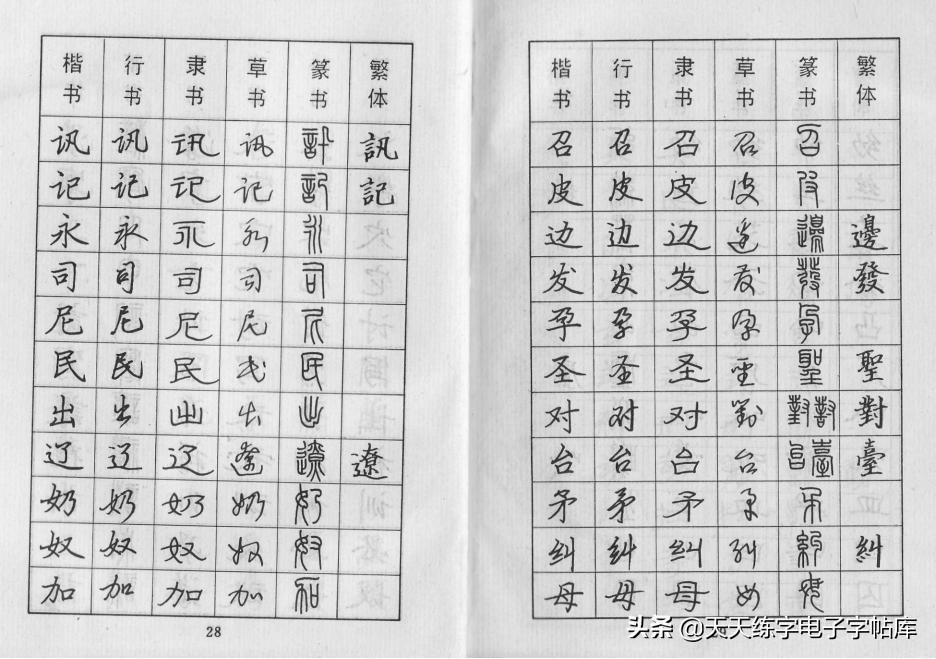 楷书 行书 隶书 草书 篆书 繁体
讯 讯 讯 讯 訊 訊
记 记 记 记 記 記
永 永 永 永 永
司 司 司 司 司
尼 尼 尼 尼 尼
民 民 民 民 民
出 出 出 出 出
辽 辽 辽 遼 遼 遼
奶 奶 奶 奶 奶
奴 奴 奴 奴 奴
加 加 加 加 加
28
楷书 行书 隶书 草书 篆书 繁体
召 召 召 召 召
皮 皮 皮 皮 皮
边 边 边 邊 邊 邊
发 发 发 发 發 發
孕 孕 孕 孕 孕
圣 圣 圣 聖 聖 聖
对 对 对 對 對對 對
台 台 台 台 台臺 臺
矛 矛 矛 矛 矛
纠 纠 纠 纠 糾 糾
母 母 母 母 母
头条 @天天练字电子字帖库